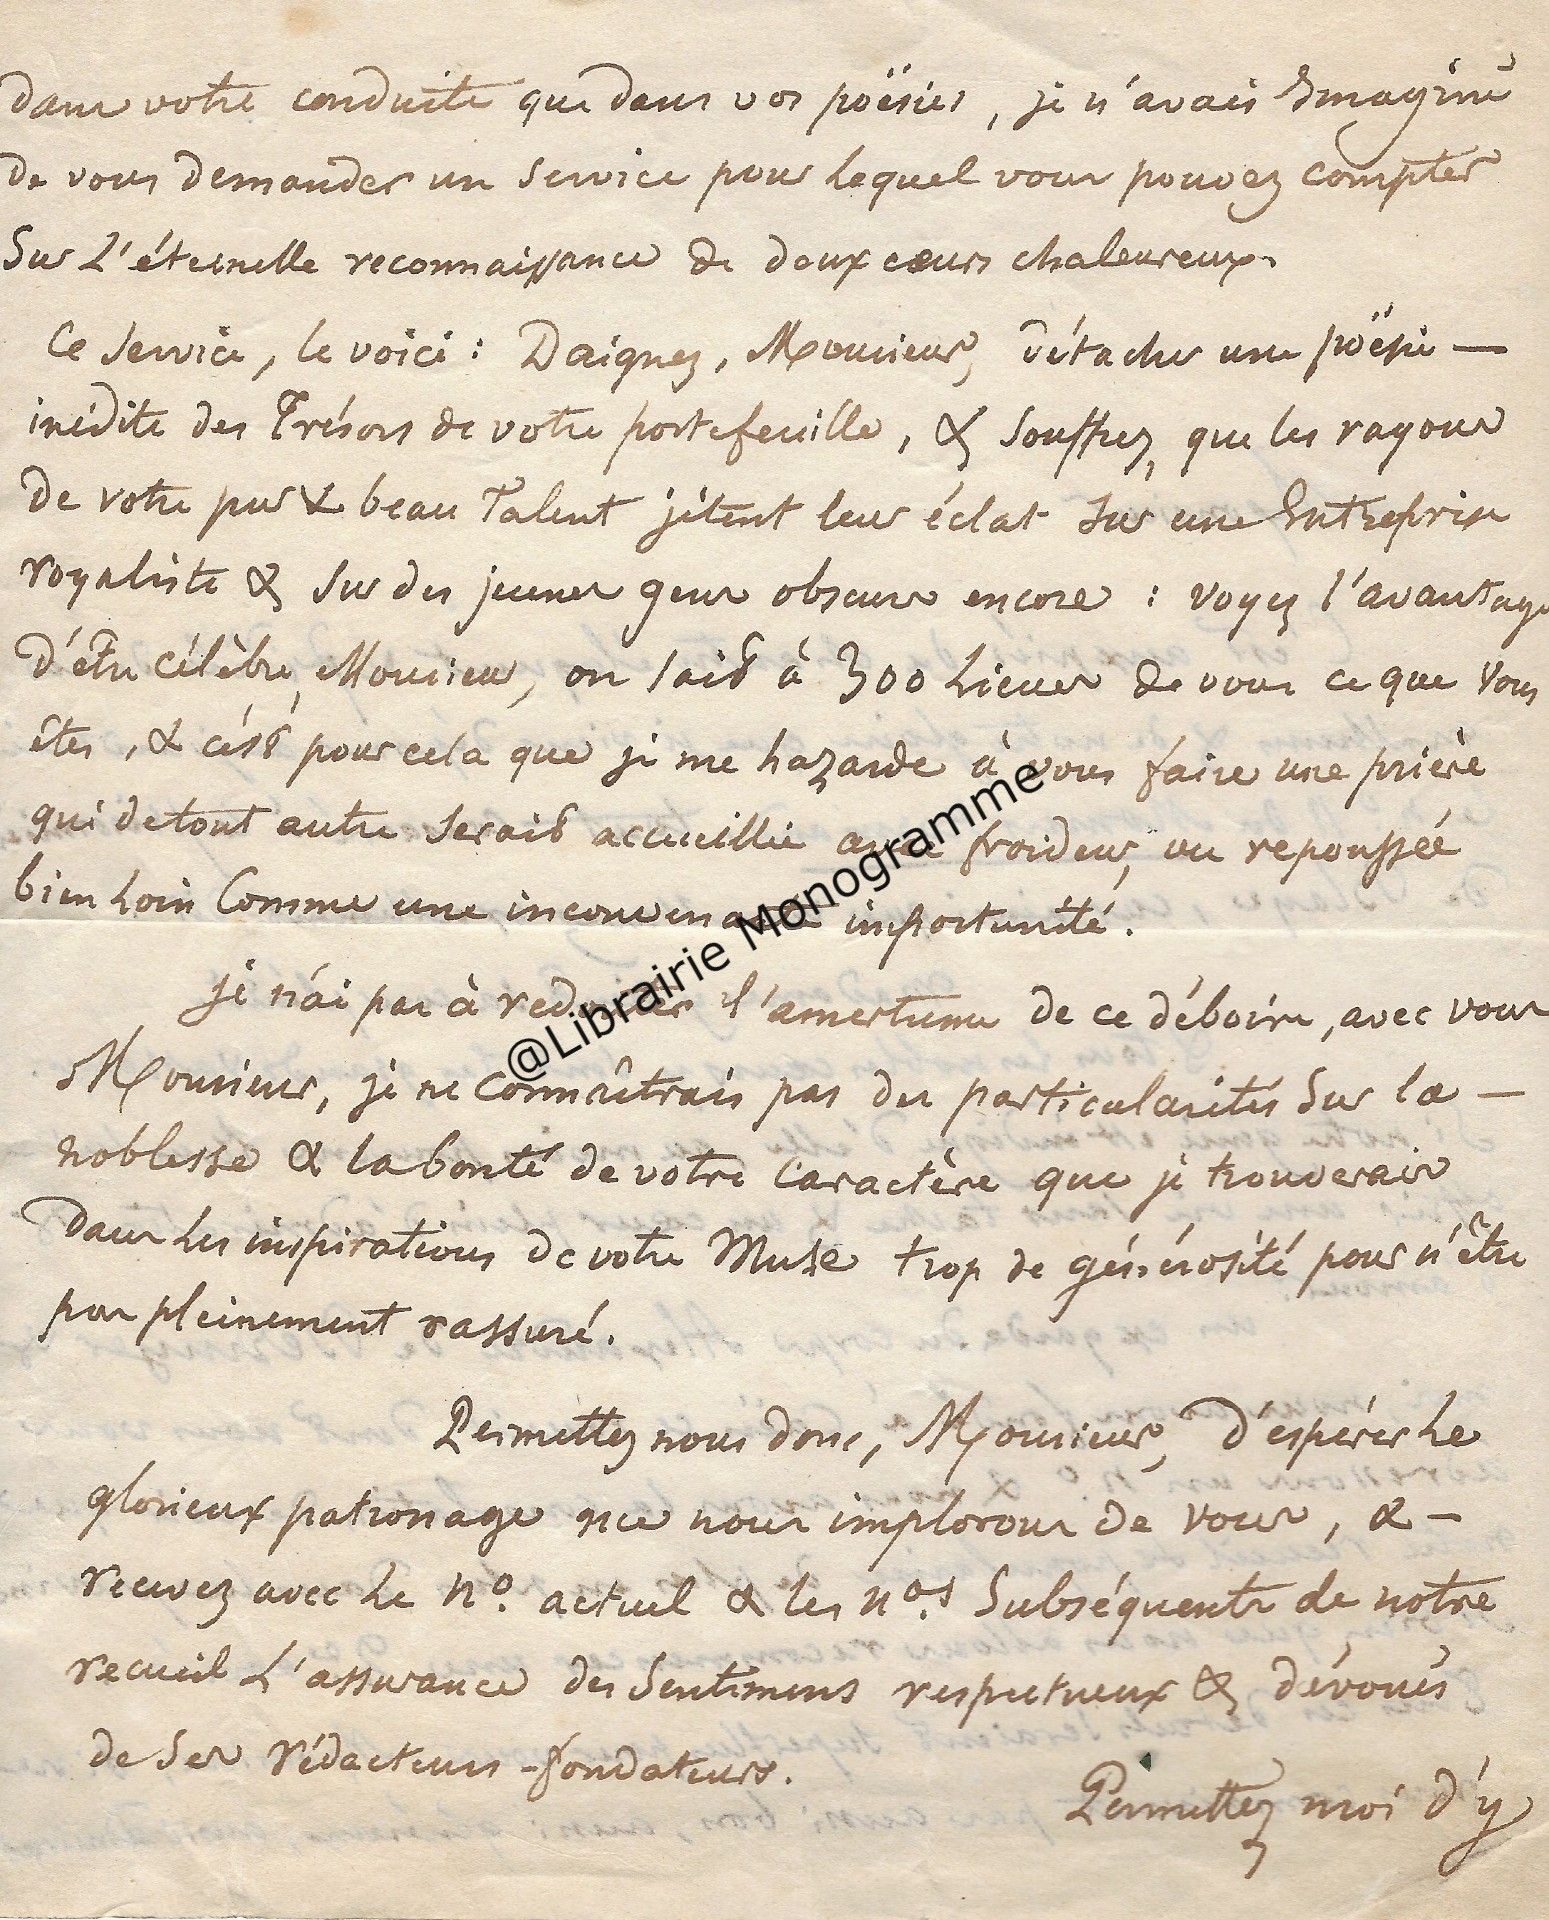 dans votre conduite que dans vos poësies, je n'avais imaginé
de vous demander un service pour lequel vous pouvez compter
sur l'éternelle reconnaissance de deux cœurs chaleureux.
Ce service, le voici : Daignez, Monsieur, détacher une poësie —
inédite des Trésors de votre portefeuille, & souffrez, que les rayons
de votre pur & beau Talent jètent leur éclat sur une Entreprise
royaliste & sur des jeunes gens obscurs encore : voyez l'avantage
d'être célèbre, Monsieur, on sait à 300 Lieues de vous ce que vous
êtes, & c'ést pour cela que je me hazarde à vous faire une prière
qui de tout autre serait accueillie avec froideur, ou repoussée
bien loin Comme une inconvenante importunité.
je n'ai pas à redouter l'amertume de ce déboire, avec vous
Monsieur, je ne connaîtrais pas des particularités sur la —
noblesse & la bonté de votre Caractère que je trouverais
dans les inspirations de votre Muse trop de générosité pour n'être
pas pleinement rassuré.
Permettez nous donc, Monsieur, d'espérer Le
glorieux patronage que nous implorons de vous, & —
recevez avec le nº. actuel & les nos. Subséquents de notre
recueil L'assurance des Sentimens respectueux & dévoués
de Ses rédacteurs-fondateurs.
Permettez moi d'y
@Librairie Monogramme